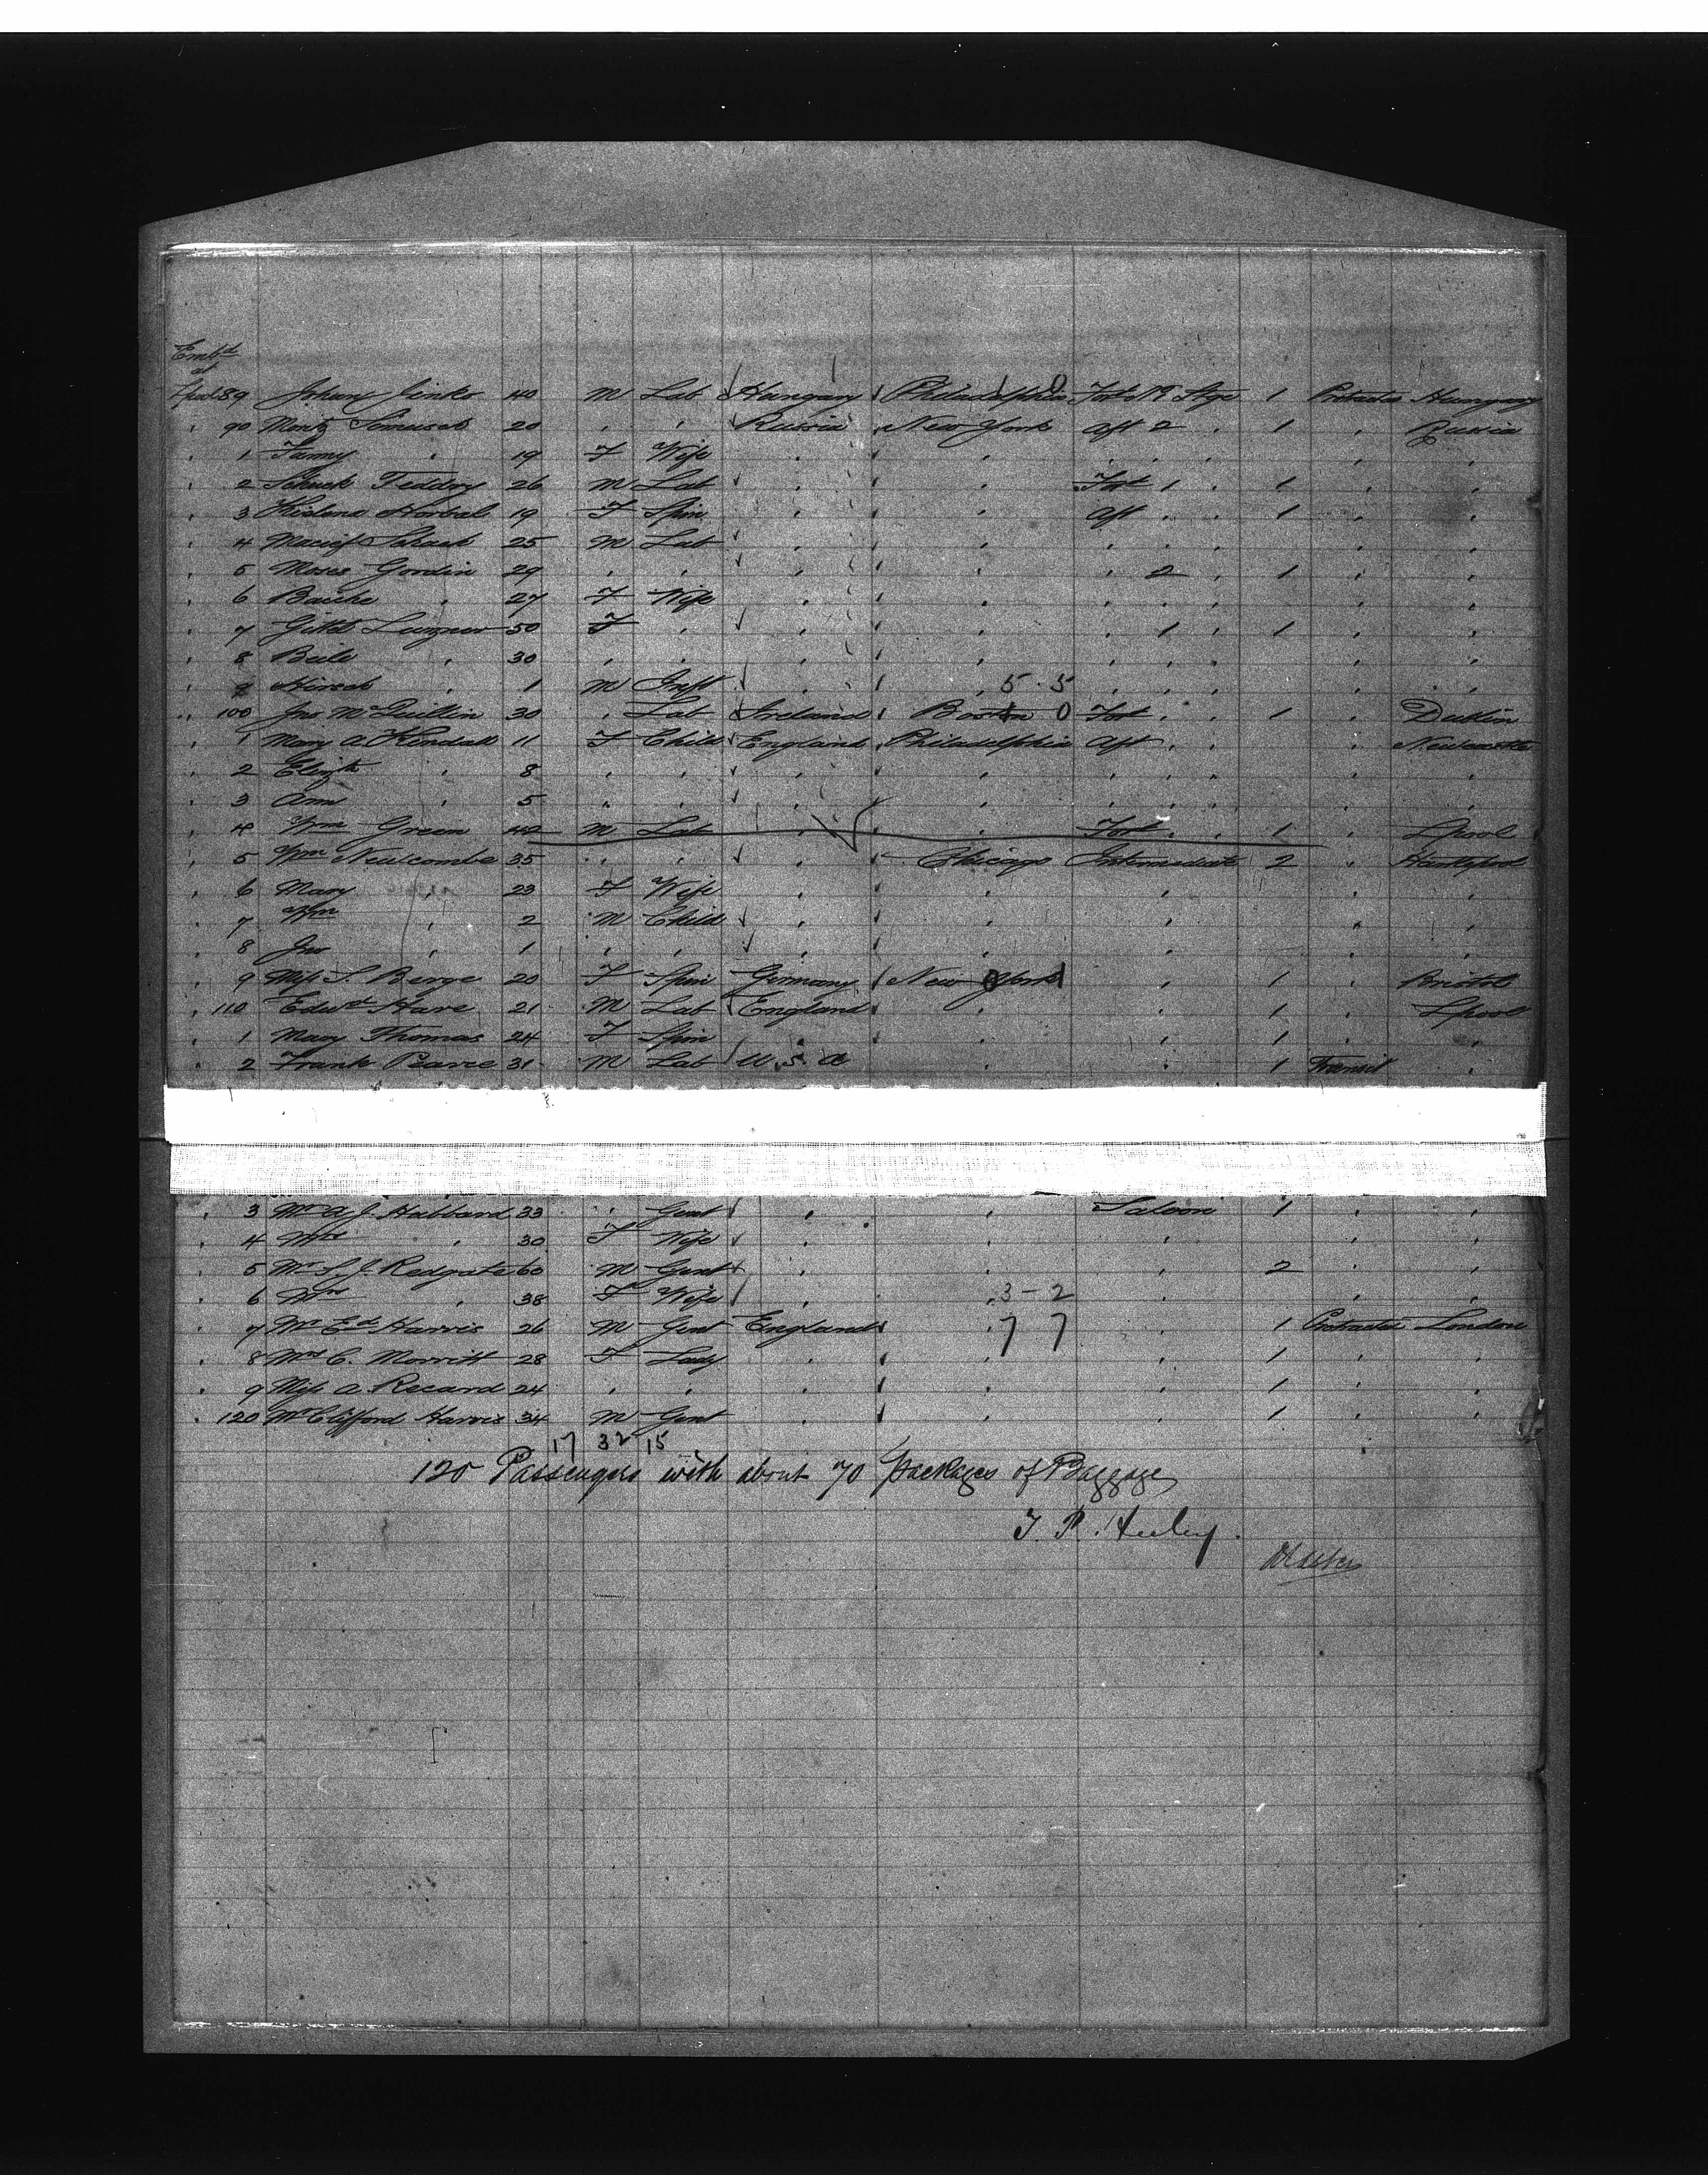 Embd
at
Lpool 89 Johann 40 M Lab Hungary Philadelphia 0 For'd No 1 Stge 1 Protracted Hungary
" 90 Moritz 20 " " Russia New York Aft 2 " 1 " Russia
" 1 Fanny " 19 F Wife " " " " " " "
" 2 Teddry 26 M Lab " " For'd 1 " 1 " "
" 3 Horbal 19 F Spin " " Aft " " 1 " "
" 4 25 M Lab " " " " " " "
" 5 Moses Gordin 29 " " " " " 2 " 1 " "
" 6 " 27 F Wife " " " " " " "
" 7 50 F " " " " 1 " 1 " "
" 8 Beile " 30 " " " " " " " " "
" 9 Hirsch " 1 M Inft " " 5 . 5 " " " " "
" 100 Jno McQuillin 30 " Lab Ireland Boston 0 For'd " " 1 " Dublin
" 1 Mary A. Kendall 11 F Child England Philadelphia Aft " " " Newcastle
" 2 Elizth " 8 " " " " " " " " "
" 3 Ann " 5 " " " " " " " " "
" 4 Wm Green 42 M Lab " " For'd " " 1 " Lpool
" 5 Wm Newcombe 35 " " " Chicago Intermediate 2 " Hartlepool
" 6 Mary " 23 F Wife " " " " "
" 7 Wm " 2 M Child " " " " "
" 8 Jno " 1 " " " " " " "
" 9 Miss S. Berge 20 F Spin Germany New York " 1 " Bristol
" 110 Edwd Hare 21 M Lab England " " 1 " Lpool
" 1 Mary Thomas 24 F Spin " " " 1 " "
" 2 Frank Pearce 31 M Lab U.S.A " " 1 Transit "
" 3 Mr A. J. Hubbard 33 " Gent " " Saloon 1 " "
" 4 Mrs " 30 F Wife " " " " "
" 5 Mr S. J. Redgate 60 M Gent " " " 2 " "
" 6 Mrs " 38 F Wife " " 3 - 2 " " "
" 7 Mr Ed. Harris 26 M Gent England " 7 7 " 1 Protracted London
" 8 Mrs C. Morritt 28 F Lady " " " 1 " "
" 9 Miss A. Recard 24 " " " " " 1 " "
" 120 Mr Clifford Harris 34 M Gent " " " 1 " "
17 32 15
120 Passengers with about 70 packages of Baggage
T. P. Heeley.
Master